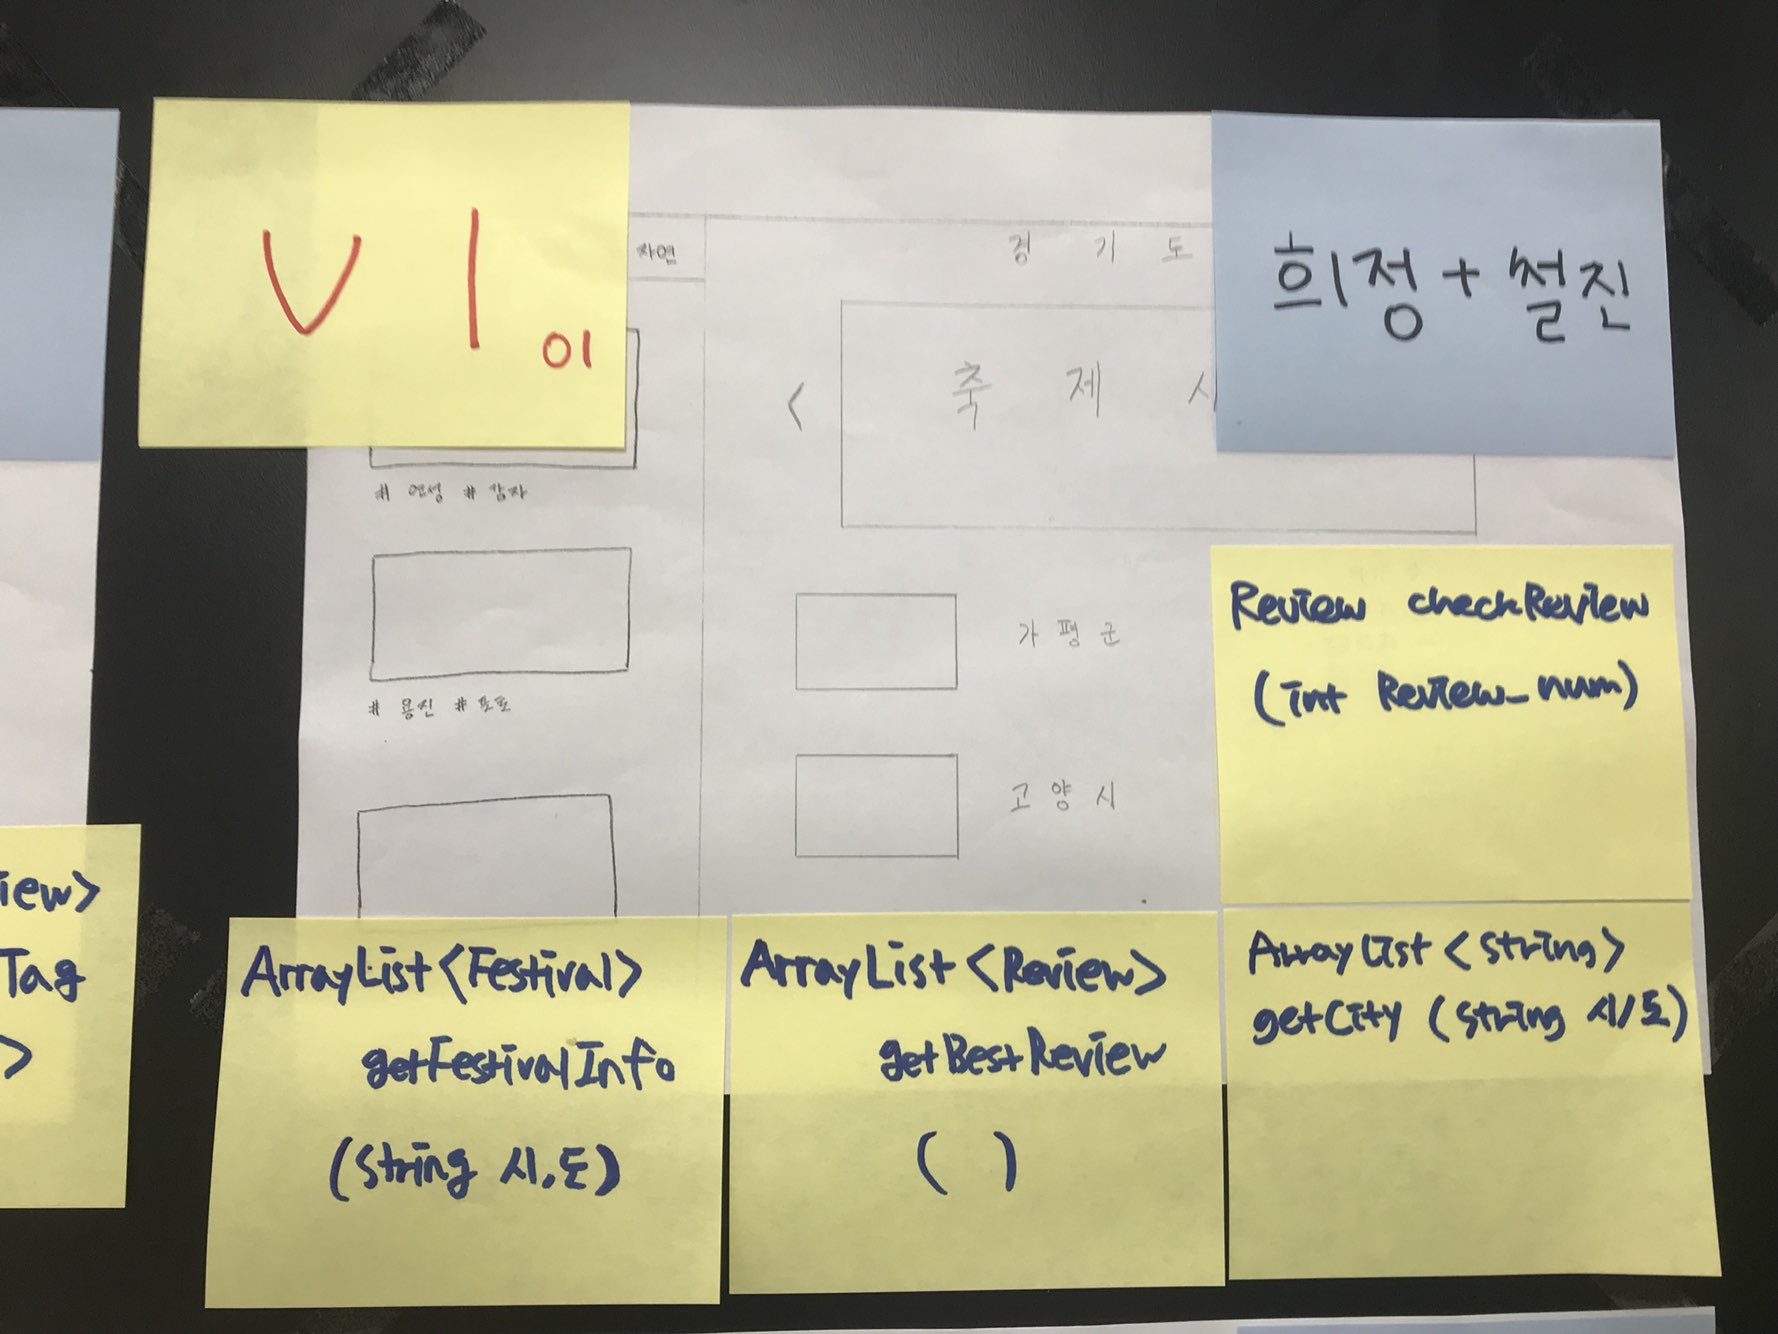 V 1 01
희정 + 철진
자연
경 기 도
<
축 제 사
# 연성 # 감자
# 용신 # 포포
가 평 군
고 양 시
Review checkReview
(int Review_num)
iew>
Tag
>
ArrayList<Festival>
getFestivalInfo
(String 시,도)
ArrayList<Review>
getBestReview
( )
ArrayList<String>
getCity (String 시/도)